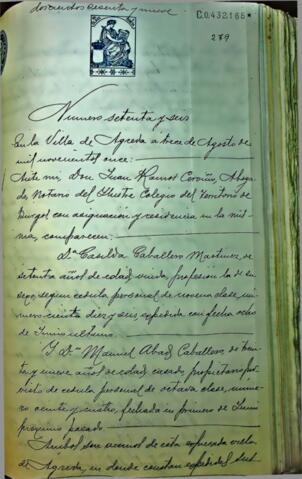 doscientos sesenta y nueve
C.0.432.166*
269
Número setenta y seis
En la Villa de Agreda a trece de Agosto de
mil novecientos once:
Ante mí, Don Juan Ramos Aboga-
do, Notario del Ilustre Colegio del Territorio de
Burgos con asignación y residencia en la mis-
ma, comparecen:
Dª Casilda Caballero Martínez, de
setenta años de edad, viuda, profesión la de su
sexo, según cédula personal de novena clase, nú-
mero ciento diez y seis, expedida con fecha ocho
de Junio último.
Y Dn Manuel Abad Caballero, de trein-
ta y nueve años de edad, casado, propietario, pro-
visto de cédula personal de octava clase, núme-
ro ciento y cuatro, fechada en primero de Junio
próximo pasado.
Ambos son vecinos de esta expresada villa
de Agreda, en donde constan expedidas sus